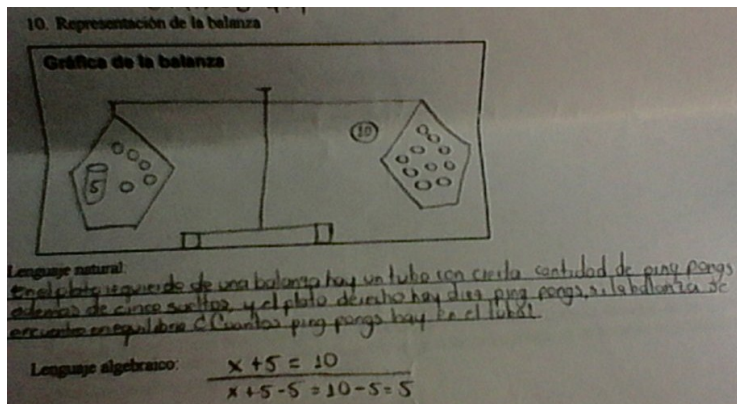 10. Representación de la balanza
Gráfica de la balanza
10
5
Lenguaje natural:
En el plato izquierdo de una balanza hay un tubo con cierta cantidad de ping pongs
además de cinco sueltos, y el plato derecho hay diez ping pongs, si la balanza se
encuentra en equilibrio ¿Cuantos ping pongs hay en el tubo?
Lenguaje algebraico: x + 5 = 10
x + 5 - 5 = 10 - 5 = 5